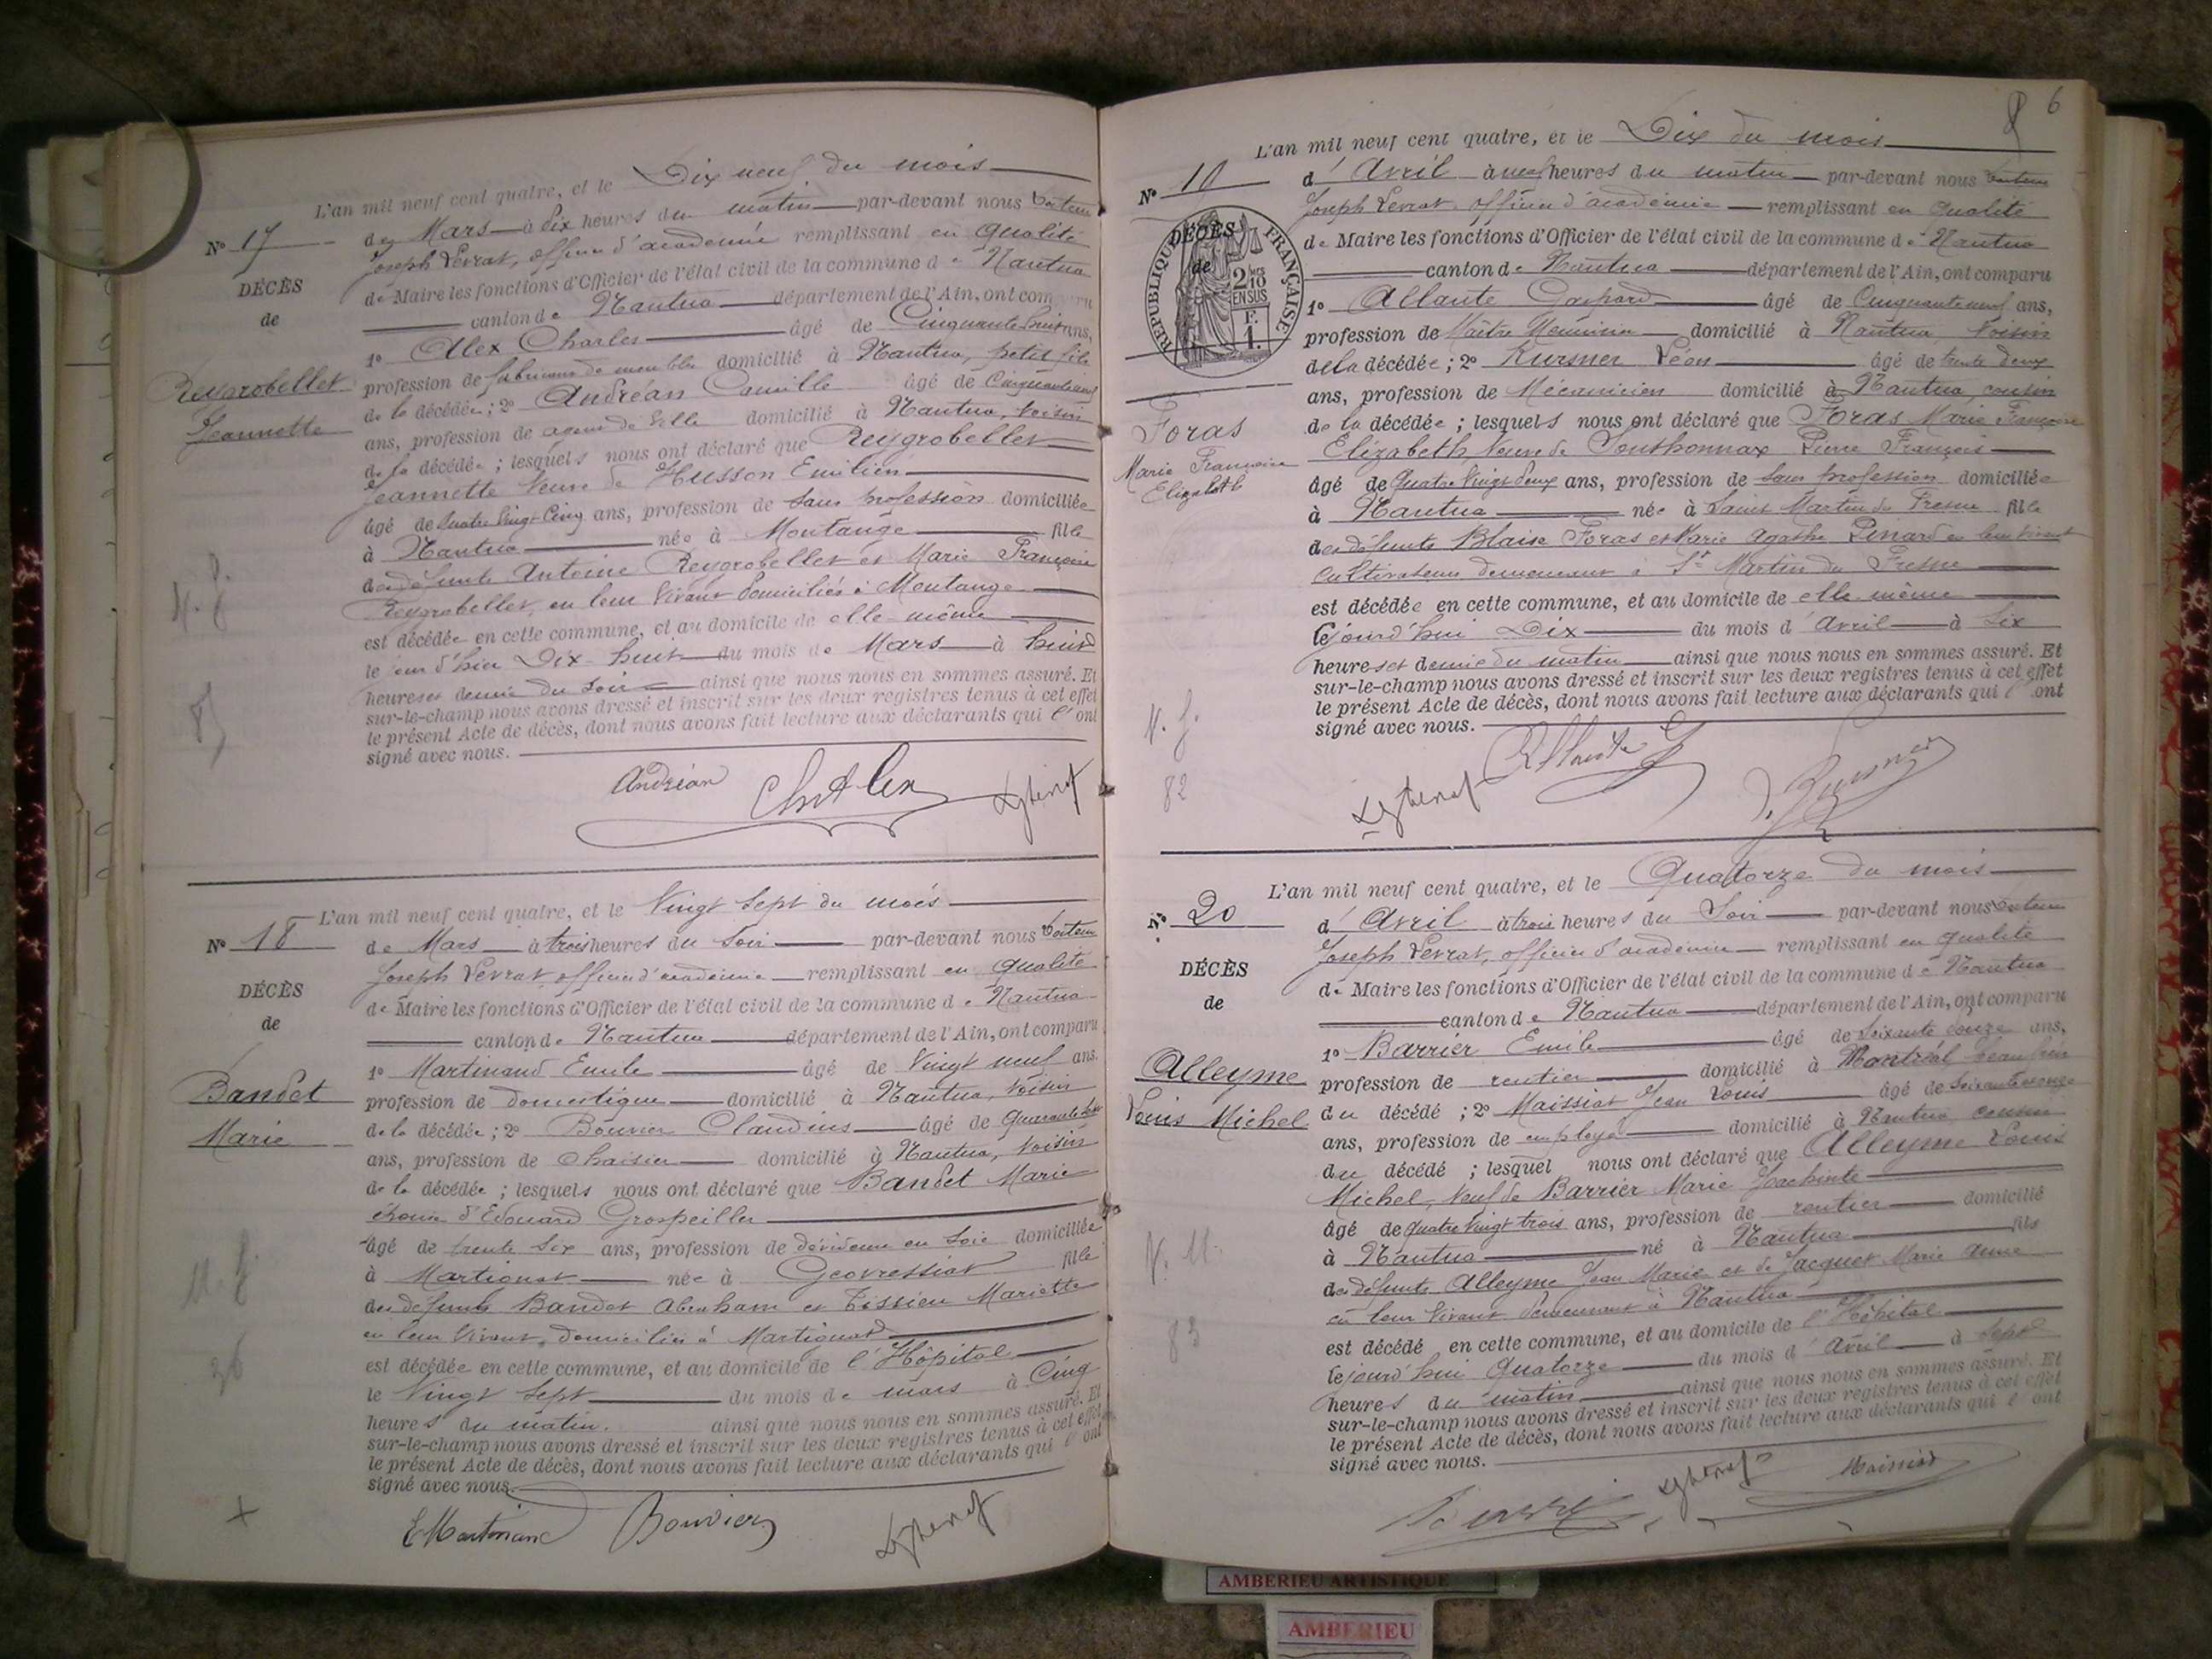 L'an mil neuf cent quatre, et le Dix neuf du mois
Nº 17
de Mars à Dix heures du matin par-devant nous
Joseph Levrat, officier d'académie remplissant en qualité
de Maire les fonctions d'Officier de l'état civil de la commune de Nantua
DÉCÈS
de
Reygrobellet
Jeannette
canton de Nantua département de l'Ain, ont comparu
1º Alex Charles âgé de Cinquante huit ans,
profession de fabricant de meubles domicilié à Nantua, petit fils
de la décédée ; 2º Andréan Camille âgé de
ans, profession de agent de ville domicilié à Nantua, voisin
de la décédée ; lesquels nous ont déclaré que Reygrobellet
Jeannette Veuve de Husson Emilien
âgé de quatre vingt cinq ans, profession de sans profession domiciliée
à Nantua née à Montange fille
des défunts Antoine Reygrobellet et Marie Françoise
Reygrobellet, en leur vivant domiciliés à Montange
est décédée en cette commune, et au domicile de elle-même
le jour d'hier Dix-huit du mois de Mars à huit
heures et demie du soir ainsi que nous nous en sommes assuré. Et
sur-le-champ nous avons dressé et inscrit sur les deux registres tenus à cet effet
le présent Acte de décès, dont nous avons fait lecture aux déclarants qui l'ont
signé avec nous.
Andréan Ch Alex
L'an mil neuf cent quatre, et le Vingt sept du mois
Nº 18
de Mars à trois heures du soir par-devant nous
Joseph Levrat, officier d'académie remplissant en qualité
de Maire les fonctions d'Officier de l'état civil de la commune de Nantua
DÉCÈS
de
Bandet
Marie
canton de Nantua département de l'Ain, ont comparu
1º Martinand Emile âgé de Vingt neuf ans.
profession de domestique domicilié à Nantua, voisin
de la décédée ; 2º Bouvier Claudius âgé de
ans, profession de Chaisier domicilié à Nantua, voisin
de la décédée ; lesquels nous ont déclaré que Bandet Marie
épouse d'Edouard Grospeiller
âgé de trente six ans, profession de dévideuse en soie domiciliée
à Martignat née à Geovressiat fille
des défunts Bandet Abraham et Tissieu Mariette
en leur vivant domiciliés à Martignat
est décédée en cette commune, et au domicile de l'Hôpital
le Vingt sept du mois de mars à Cinq
heures du matin. ainsi que nous nous en sommes assuré. Et
sur-le-champ nous avons dressé et inscrit sur les deux registres tenus à cet effet
le présent Acte de décès, dont nous avons fait lecture aux déclarants qui l'ont
signé avec nous.
E Martinand Bouvier
36
6
L'an mil neuf cent quatre, et le Dix du mois
Nº 19
d'Avril à neuf heures du matin par-devant nous
Joseph Levrat, officier d'académie remplissant en qualité
de Maire les fonctions d'Officier de l'état civil de la commune de Nantua
DÉCÈS
de
RÉPUBLIQUE FRANÇAISE
2/10 EN SUS
F. 1.
Foras
Marie Françoise
Elizabeth
canton de Nantua département de l'Ain, ont comparu
1º Allante Gaspard âgé de Cinquante neuf ans,
profession de Maître Menuisier domicilié à Nantua, voisin
de la décédée ; 2º Kursner Léon âgé de trente deux
ans, profession de Mécanicien domicilié à Nantua, cousin
de la décédée ; lesquels nous ont déclaré que Foras Marie Françoise
Elizabeth, Veuve de Sonthonnax Pierre François
âgé de Quatre Vingt deux ans, profession de sans profession domiciliée
à Nantua née à Saint Martin du Fresne fille
des défunts Blaise Foras et Marie Agathe Pinard en leur vivant
Cultivateurs demeurant à St Martin du Fresne
est décédée en cette commune, et au domicile de elle-même
Cejourd'hui Dix du mois d'Avril à Six
heures et demie du matin ainsi que nous nous en sommes assuré. Et
sur-le-champ nous avons dressé et inscrit sur les deux registres tenus à cet effet
le présent Acte de décès, dont nous avons fait lecture aux déclarants qui l'ont
signé avec nous.
82
L'an mil neuf cent quatre, et le Quatorze du mois
Nº 20
d'Avril à trois heures du Soir par-devant nous
Joseph Levrat, officier d'académie remplissant en qualité
de Maire les fonctions d'Officier de l'état civil de la commune de Nantua
DÉCÈS
de
Alleyme
Louis Michel
canton de Nantua département de l'Ain, ont comparu
1º Barrier Emile âgé de soixante douze ans,
profession de rentier domicilié à Montréal beau frère
du décédé ; 2º Maissiat Jean Louis âgé de
ans, profession de employé domicilié à Nantua cousin
du décédé ; lesquel nous ont déclaré que Alleyme Louis
Michel, Veuf de Barrier Marie Joachinte
âgé de quatre vingt trois ans, profession de rentier domicilié
à Nantua né à Nantua fils
des défunts Alleyme Jean Marie et de Jacquet Marie Anne
en leur vivant demeurant à Nantua
est décédé en cette commune, et au domicile de l'Hôpital
Cejourd'hui Quatorze du mois d'Avril à Sept
heures du matin ainsi que nous nous en sommes assuré. Et
sur-le-champ nous avons dressé et inscrit sur les deux registres tenus à cet effet
le présent Acte de décès, dont nous avons fait lecture aux déclarants qui l'ont
signé avec nous.
83
Maissiat
AMBERIEU ARTISTIQUE
AMBERIEU